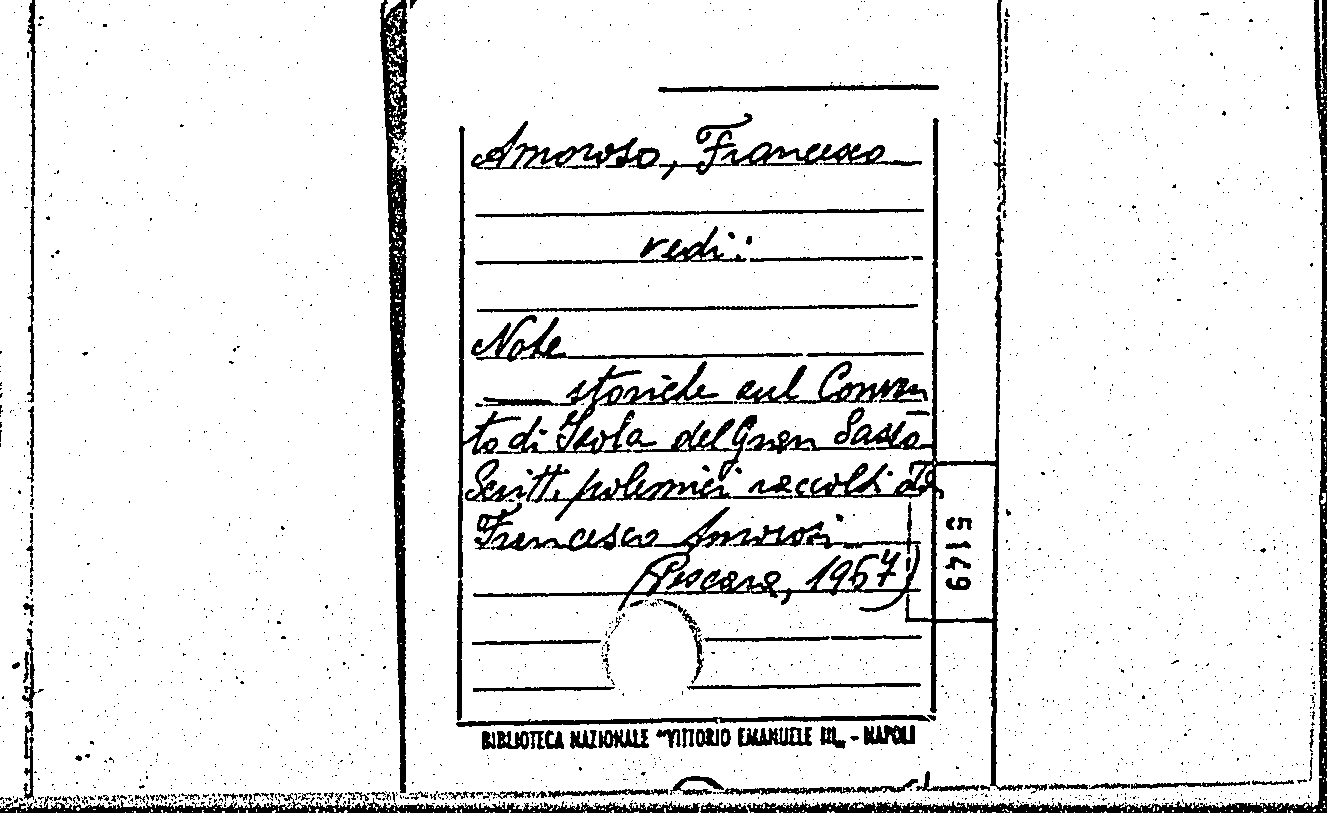 Amoroso, Francesco
vedi:
Note
storiche sul Conven
to di Isola del Gran Sasso
Scritti polemici raccolti da
Francesco Amorosi
(Pescara, 1957)
5149
BIBLIOTECA NAZIONALE "VITTORIO EMANUELE III„ - NAPOLI